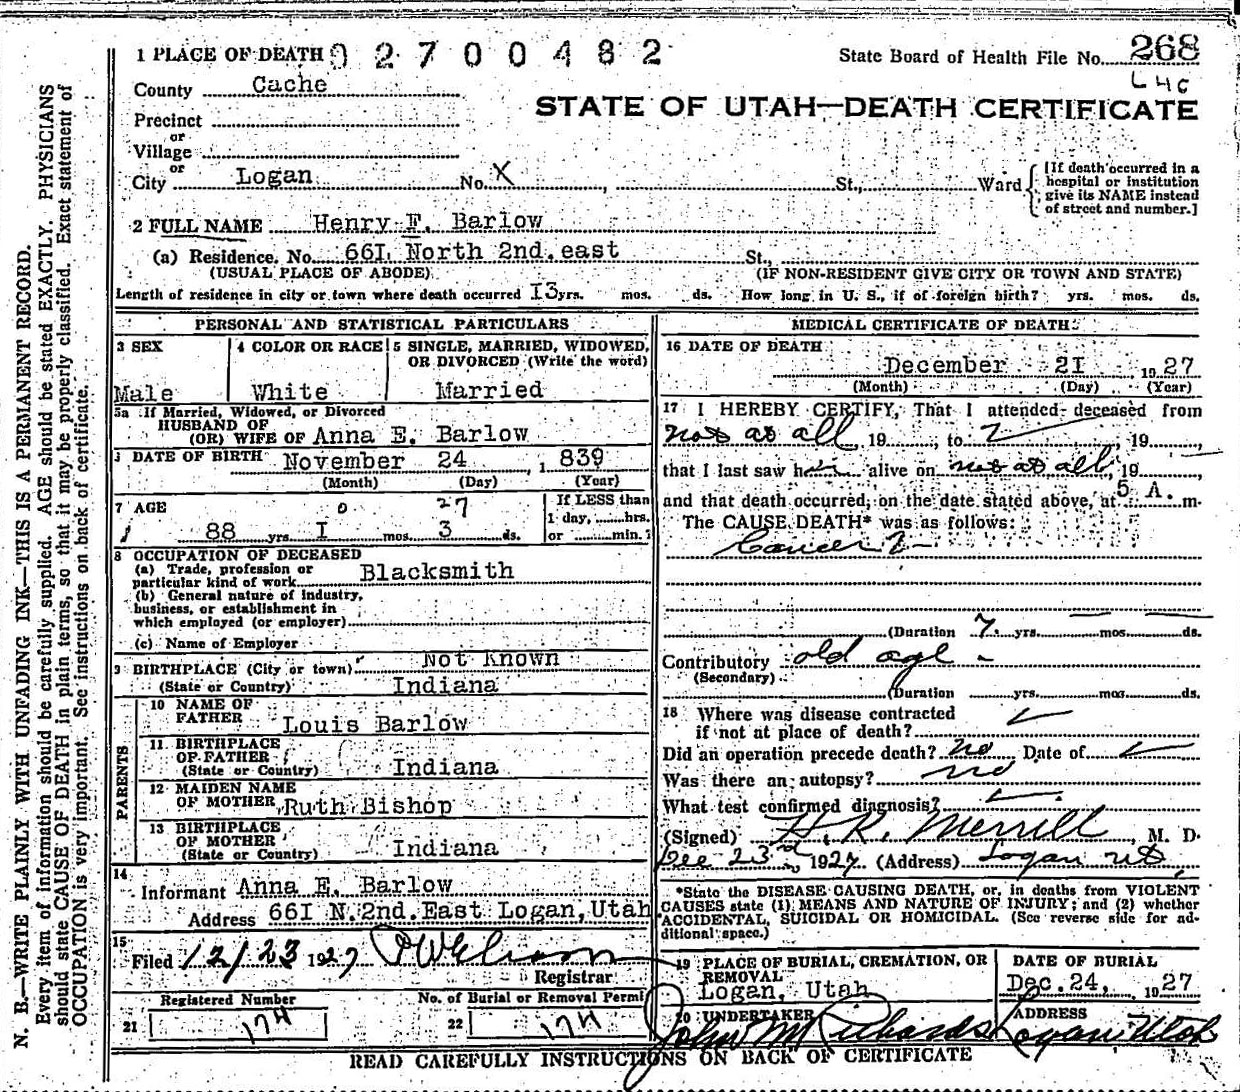 N. B.—WRITE PLAINLY WITH UNFADING INK—THIS IS A PERMANENT RECORD.
Every item of information should be carefully supplied. AGE should be stated EXACTLY. PHYSICIANS
should state CAUSE OF DEATH in plain terms, so that it may be properly classified. Exact statement of
OCCUPATION is very important. See instructions on back of certificate.
1 PLACE OF DEATH 02700482
State Board of Health File No. 268
County Cache
STATE OF UTAH—DEATH CERTIFICATE
Precinct
or
Village
or
City Logan No. X , St., Ward
[If death occurred in a
hospital or institution
give its NAME instead
of street and number.]
2 FULL NAME Henry F. Barlow
(a) Residence. No. 66I North 2nd. east St.,
(USUAL PLACE OF ABODE) (IF NON-RESIDENT GIVE CITY OR TOWN AND STATE)
Length of residence in city or town where death occurred I3 yrs. mos. ds. How long in U. S., if of foreign birth? yrs. mos. ds.
PERSONAL AND STATISTICAL PARTICULARS
3 SEX
Male
4 COLOR OR RACE
White
5 SINGLE, MARRIED, WIDOWED,
OR DIVORCED (Write the word)
Married
5a If Married, Widowed, or Divorced
HUSBAND OF
(OR) WIFE OF Anna E. Barlow
DATE OF BIRTH November 24 , 1 839
(Month) (Day) (Year)
7 AGE 0 27
88 yrs. I mos. 3 ds.
If LESS than
1 day, hrs.
or min.?
8 OCCUPATION OF DECEASED
(a) Trade, profession or
particular kind of work Blacksmith
(b) General nature of industry,
business, or establishment in
which employed (or employer)
(c) Name of Employer
9 BIRTHPLACE (City or town) Not Known
(State or Country) Indiana
PARENTS
10 NAME OF
FATHER Louis Barlow
11 BIRTHPLACE
OF FATHER
(State or Country) Indiana
12 MAIDEN NAME
OF MOTHER Ruth Bishop
13 BIRTHPLACE
OF MOTHER
(State or Country) Indiana
14
Informant Anna E. Barlow
Address 66I N. 2nd. East Logan, Utah
15
Filed 12/23 1927
Registrar
Registered Number
21 174
No. of Burial or Removal Permi
22 174
MEDICAL CERTIFICATE OF DEATH
16 DATE OF DEATH
December 2I 1927
(Month) (Day) (Year)
17 I HEREBY CERTIFY, That I attended deceased from
not at all, 19 , to , 19 ,
that I last saw him alive on not at all, 19
and that death occurred, on the date stated above, at 5 A. m.
The CAUSE DEATH* was as follows:
Cancer ?
(Duration 7. yrs. mos. ds.
Contributory old age -
(Secondary)
(Duration yrs. mos. ds.
18 Where was disease contracted
if not at place of death?
Did an operation precede death? no Date of
Was there an autopsy? no
What test confirmed diagnosis?
(Signed) H. R. Merrill, M. D.
Dec 23rd, 1927. (Address) Logan Ut.
*State the DISEASE CAUSING DEATH, or, in deaths from VIOLENT
CAUSES state (1) MEANS AND NATURE OF INJURY; and (2) whether
ACCIDENTAL, SUICIDAL OR HOMICIDAL. (See reverse side for ad-
ditional space.)
19 PLACE OF BURIAL, CREMATION, OR
REMOVAL
Logan, Utah
DATE OF BURIAL
Dec. 24, 1927
20 UNDERTAKER
John M Richards
ADDRESS
Logan Utah
READ CAREFULLY INSTRUCTIONS ON BACK OF CERTIFICATE